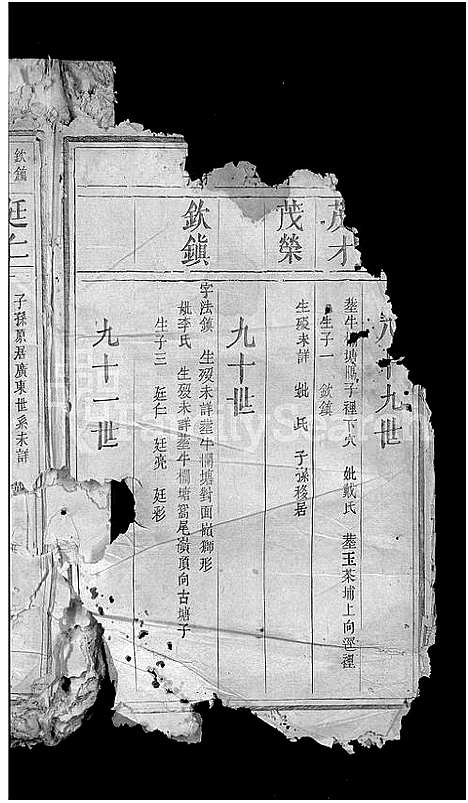 八十九世
茂才
葬牛欄塘鵰子裡下穴 妣戴氏 葬玉茶埔上向逕裡
生子一 欽鎮
茂榮
生歿未詳 妣 氏 子孫移居
九十世
欽鎮
字法鎮 生歿未詳葬牛欄塘對面嶺獅形
妣李氏 生歿未詳葬牛欄塘窩尾嶺頂向古塘子
生子三 廷仁 廷亮 廷彩
九十一世
欽鎮
廷仁
子孫原居廣東世系未詳
FamilySearch